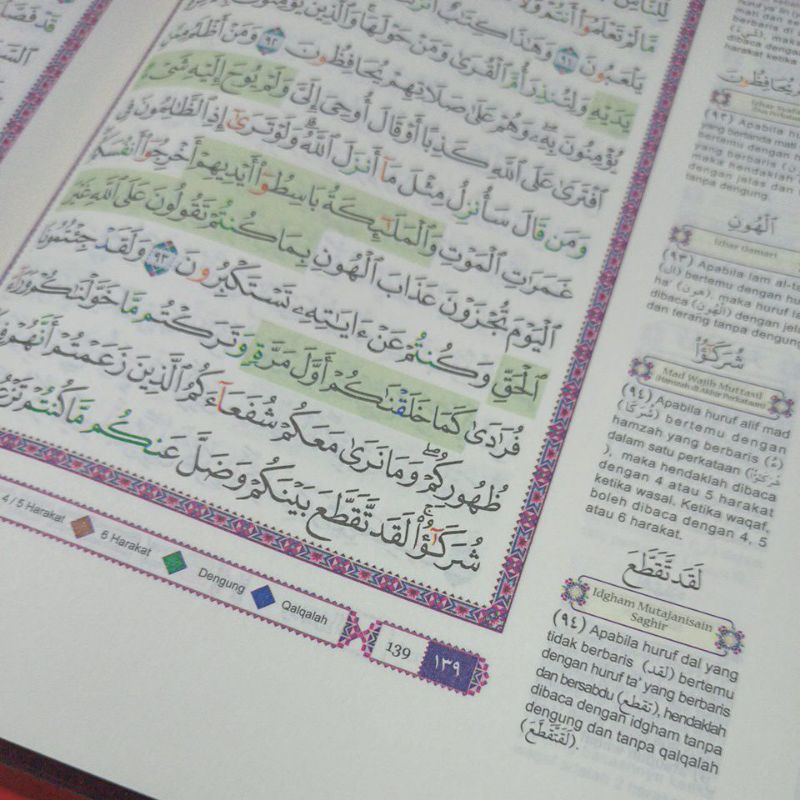 لِلنَّاسِ
مَّا لَمْ تَعْلَمُوٓا۟ أَنتُمْ وَلَآ
يَلْعَبُونَ ٩١ وَهَٰذَا كِتَٰبٌ
يَدَيْهِ وَلِتُنذِرَ أُمَّ ٱلْقُرَىٰ وَمَنْ حَوْلَهَا وَٱلَّذِينَ يُؤْمِنُونَ
يُؤْمِنُونَ بِهِۦ وَهُمْ عَلَىٰ صَلَاتِهِمْ يُحَافِظُونَ ٩٢ وَمَنْ أَظْلَمُ مِمَّنِ
ٱفْتَرَىٰ عَلَى ٱللَّهِ كَذِبًا أَوْ قَالَ أُوحِىَ إِلَىَّ وَلَمْ يُوحَ إِلَيْهِ شَىْءٌ
وَمَن قَالَ سَأُنزِلُ مِثْلَ مَآ أَنزَلَ ٱللَّهُ وَلَوْ تَرَىٰٓ إِذِ ٱلظَّٰلِمُونَ فِى
غَمَرَٰتِ ٱلْمَوْتِ وَٱلْمَلَٰٓئِكَةُ بَاسِطُوٓا۟ أَيْدِيهِمْ أَخْرِجُوٓا۟ أَنفُسَكُمُ
ٱلْيَوْمَ تُجْزَوْنَ عَذَابَ ٱلْهُونِ بِمَا كُنتُمْ تَقُولُونَ عَلَى ٱللَّهِ غَيْرَ
ٱلْحَقِّ وَكُنتُمْ عَنْ ءَايَٰتِهِۦ تَسْتَكْبِرُونَ ٩٣ وَلَقَدْ جِئْتُمُونَا
فُرَٰدَىٰ كَمَا خَلَقْنَٰكُمْ أَوَّلَ مَرَّةٍ وَتَرَكْتُم مَّا خَوَّلْنَٰكُمْ وَرَآءَ
ظُهُورِكُمْ وَمَا نَرَىٰ مَعَكُمْ شُفَعَآءَكُمُ ٱلَّذِينَ زَعَمْتُمْ أَنَّهُمْ فِيكُمْ
شُرَكَٰٓؤُا۟ لَقَد تَّقَطَّعَ بَيْنَكُمْ وَضَلَّ عَنكُم مَّا كُنتُمْ تَزْعُمُونَ
4 / 5 Harakat 6 Harakat Dengung Qalqalah
139 ١٣٩
يُحَافِظُونَ
(٩٢) Apabila
tanpa dengung.
ٱلْهُونِ
Izhar Qamari
(٩٣) Apabila lam al-ta
(ال) bertemu dengan hu
ha' (هون), maka huruf la
dibaca (ٱلْهُونِ) dengan jela
dan terang tanpa dengung
شُرَكَٰٓؤُا۟
Mad Wajib Muttasil
(٩٤) Apabila huruf alif mad
(شُرَكَا) bertemu dengan
hamzah yang berbaris (ؤُ)
dalam satu perkataan (شُرَكَٰٓؤُا۟
), maka hendaklah dibaca
dengan 4 atau 5 harakat
ketika wasal. Ketika waqaf,
boleh dibaca dengan 4, 5
atau 6 harakat.
لَقَد تَّقَطَّعَ
Idgham Mutajanisain
Saghir
(٩٤) Apabila huruf dal yang
tidak berbaris (لقد) bertemu
dengan huruf ta' yang berbaris
dan bersabdu (تقطع), hendaklah
dibaca dengan idgham tanpa
dengung dan tanpa qalqalah
(لَقَتَّقَطَّعَ).